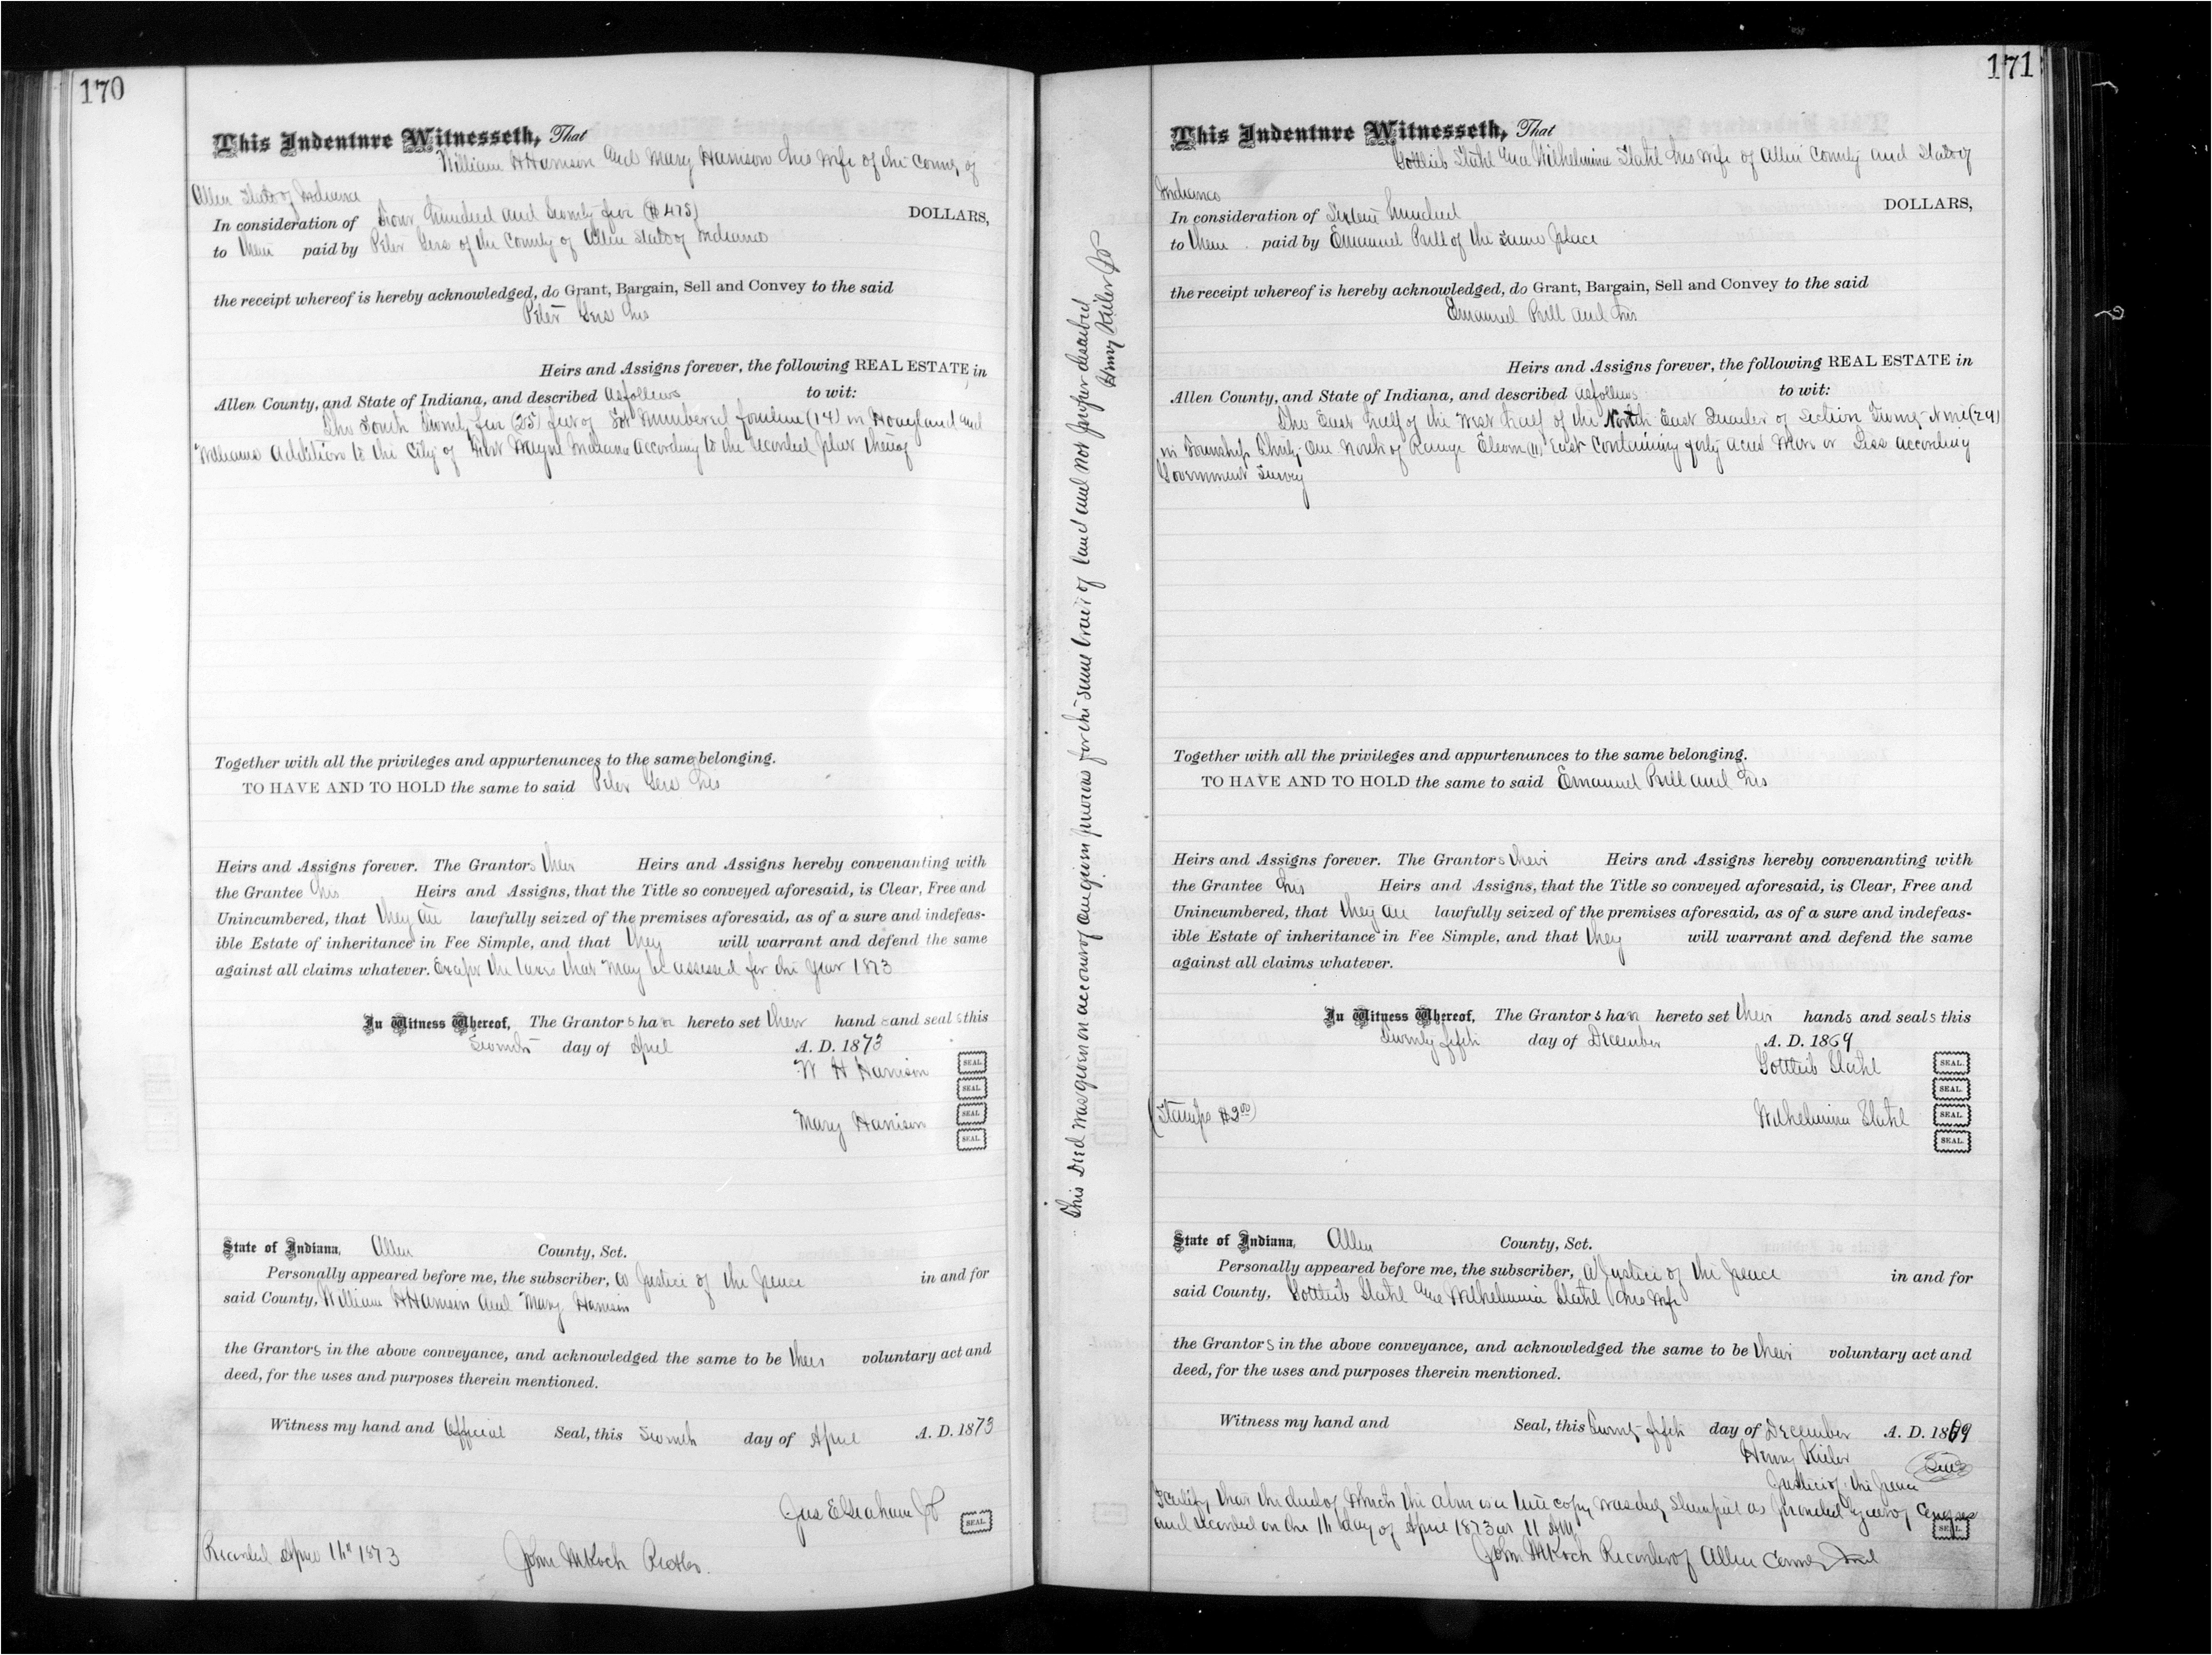 170
This Indenture Witnesseth, That
William H Harrison and Mary Harrison his wife of the County of
Allen State of Indiana
In consideration of Four hundred and Seventy five ($475) DOLLARS,
to them paid by Peter Gers of the County of Allen State of Indiana
the receipt whereof is hereby acknowledged, do Grant, Bargain, Sell and Convey to the said
Peter Gers his
Heirs and Assigns forever, the following REAL ESTATE in
Allen County, and State of Indiana, and described as follows to wit:
The South Twenty five (25) feet of Lot Numbered fourteen (14) in Hoagland and
Williams Addition to the City of Fort Wayne Indiana according to the recorded plat thereof
Together with all the privileges and appurtenances to the same belonging.
TO HAVE AND TO HOLD the same to said Peter Gers his
Heirs and Assigns forever. The Grantors their Heirs and Assigns hereby convenanting with
the Grantee his Heirs and Assigns, that the Title so conveyed aforesaid, is Clear, Free and
Unincumbered, that they are lawfully seized of the premises aforesaid, as of a sure and indefeas-
ible Estate of inheritance in Fee Simple, and that they will warrant and defend the same
against all claims whatever. Except the taxes that may be assessed for the year 1873
In Witness Whereof, The Grantors have hereto set their hands and seals this
Seventh day of April A. D. 1873
W H Harrison SEAL.
SEAL.
Mary Harrison SEAL.
SEAL.
State of Indiana, Allen County, Sct.
Personally appeared before me, the subscriber, a Justice of the peace in and for
said County, William H Harrison and Mary Harrison
the Grantors in the above conveyance, and acknowledged the same to be their voluntary act and
deed, for the uses and purposes therein mentioned.
Witness my hand and Official Seal, this Seventh day of April A. D. 1873
Jas E Graham JP SEAL
Recorded April 11th 1873 John M Koch Recorder.
This Deed was given on account of one given previous for the same tract of land and not proper described
Henry Kieler JP
171
This Indenture Witnesseth, That
Gottlieb Stahl and Wilhelmina Stahl his wife of Allen County and State of
Indiana
In consideration of Sixteen hundred DOLLARS,
to them paid by Emanuel Prill of the same place
the receipt whereof is hereby acknowledged, do Grant, Bargain, Sell and Convey to the said
Emanuel Prill and his
Heirs and Assigns forever, the following REAL ESTATE in
Allen County, and State of Indiana, and described as follows to wit:
The East half of the West half of the North East Quarter of Section Twenty-Nine (29)
in Township Thirty-One North of Range Eleven (11) East Containing forty acres More or Less according
Government Survey
Together with all the privileges and appurtenances to the same belonging.
TO HAVE AND TO HOLD the same to said Emanuel Prill and his
Heirs and Assigns forever. The Grantors their Heirs and Assigns hereby convenanting with
the Grantee his Heirs and Assigns, that the Title so conveyed aforesaid, is Clear, Free and
Unincumbered, that they are lawfully seized of the premises aforesaid, as of a sure and indefeas-
ible Estate of inheritance in Fee Simple, and that they will warrant and defend the same
against all claims whatever.
In Witness Whereof, The Grantors have hereto set their hands and seals this
Twenty fifth day of December A. D. 1869
Gottlieb Stahl SEAL.
SEAL.
(Stamps $2.00) Wilhelmina Stahl SEAL
SEAL.
State of Indiana, Allen County, Sct.
Personally appeared before me, the subscriber, a Justice of the peace in and for
said County, Gottlieb Stahl and Wilhelmina Stahl his wife
the Grantors in the above conveyance, and acknowledged the same to be their voluntary act and
deed, for the uses and purposes therein mentioned.
Witness my hand and Seal, this Twenty-fifth day of December A. D. 1869
Henry Kieler Seal
Justice of the peace
I certify that the deed of which the above is a true copy was duly Stamped as provided by act of Congress
and recorded on the 11 day of April 1873 at 11 AM SEAL
John M Koch Recorder of Allen County Ind